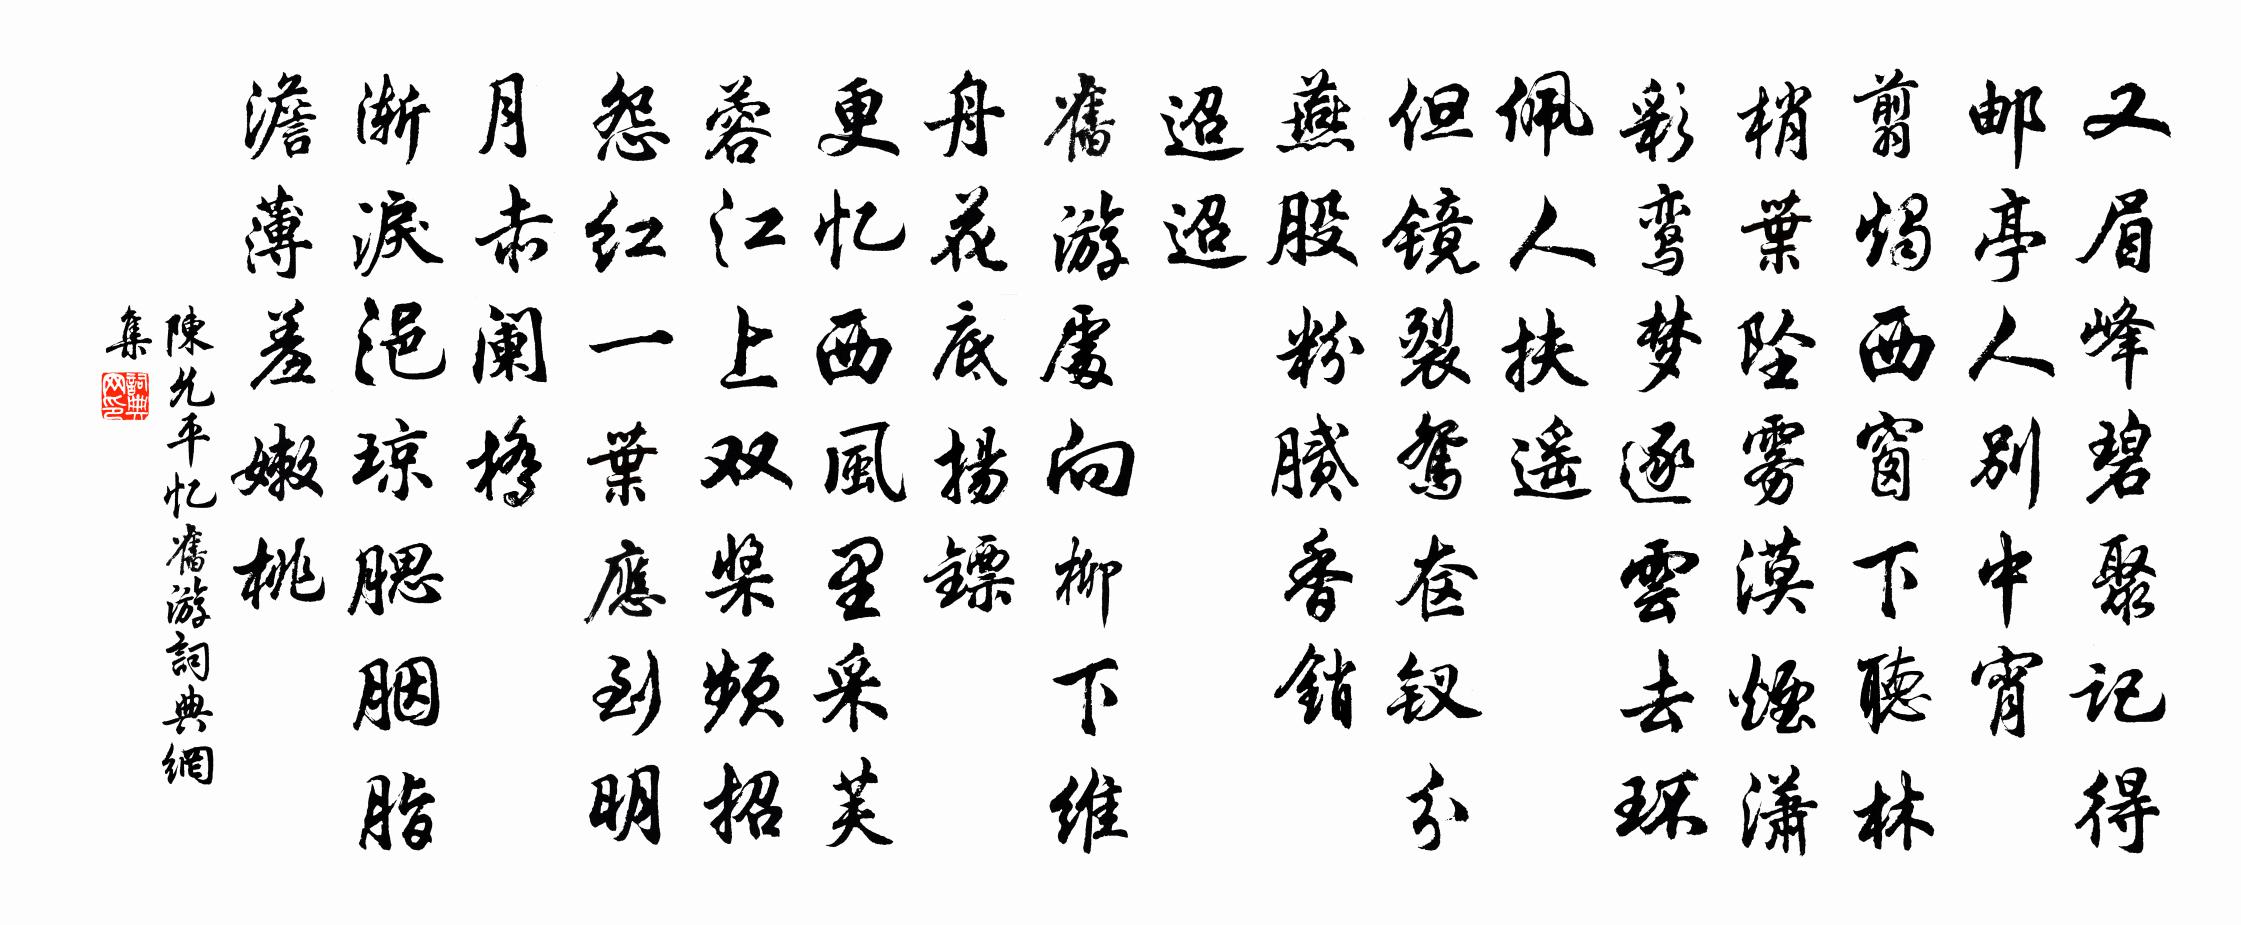 又眉峰碧聚记得
邮亭人别中宵
剪燭西窗下聽林
梢葉坠雾漠煙潇
彩鸾梦逐雲去环
佩人扶遥
但镜裂鸳奁钗分
燕股粉腻香銷
迢迢
舊游處向柳下维
舟花底揚鑣
更忆西風里采芙
蓉江上双桨频招
怨红一葉應到明
月赤阑橋
渐淚浥琼腮胭脂
澹薄羞嫩桃
陳允平忆舊游詞典網
集
詞典
网印